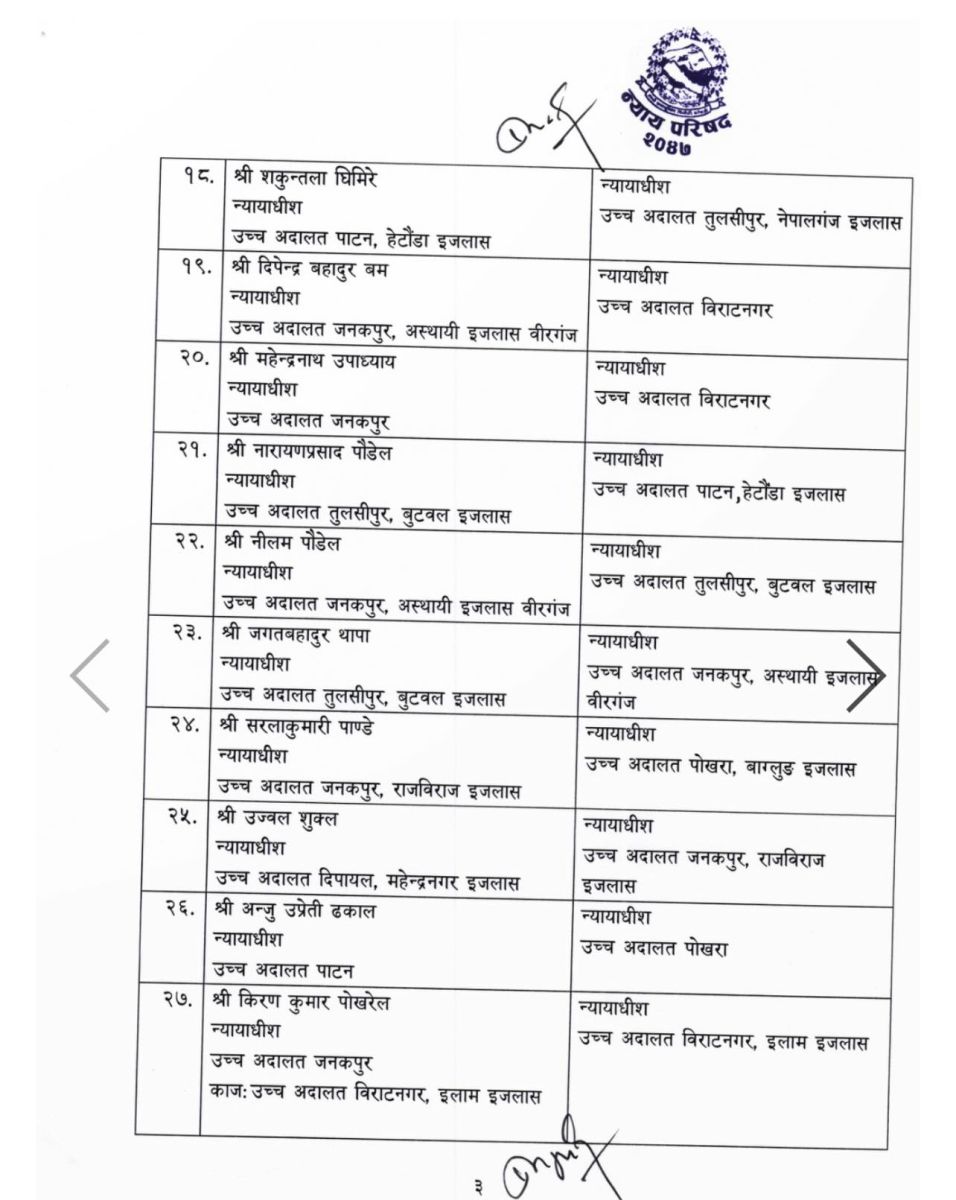 न्याय परिषद
२०४७
१८. श्री शकुन्तला घिमिरे
न्यायाधीश
उच्च अदालत पाटन, हेटौंडा इजलास
न्यायाधीश
उच्च अदालत तुलसीपुर, नेपालगंज इजलास
१९. श्री दिपेन्द्र बहादुर बम
न्यायाधीश
उच्च अदालत जनकपुर, अस्थायी इजलास वीरगंज
न्यायाधीश
उच्च अदालत विराटनगर
२०. श्री महेन्द्रनाथ उपाध्याय
न्यायाधीश
उच्च अदालत जनकपुर
न्यायाधीश
उच्च अदालत विराटनगर
२१. श्री नारायणप्रसाद पौडेल
न्यायाधीश
उच्च अदालत तुलसीपुर, बुटवल इजलास
न्यायाधीश
उच्च अदालत पाटन,हेटौंडा इजलास
२२. श्री नीलम पौडेल
न्यायाधीश
उच्च अदालत जनकपुर, अस्थायी इजलास वीरगंज
न्यायाधीश
उच्च अदालत तुलसीपुर, बुटवल इजलास
२३. श्री जगतबहादुर थापा
न्यायाधीश
उच्च अदालत तुलसीपुर, बुटवल इजलास
न्यायाधीश
उच्च अदालत जनकपुर, अस्थायी इजलास
वीरगंज
२४. श्री सरलाकुमारी पाण्डे
न्यायाधीश
उच्च अदालत जनकपुर, राजविराज इजलास
न्यायाधीश
उच्च अदालत पोखरा, बाग्लुङ इजलास
२५. श्री उज्वल शुक्ल
न्यायाधीश
उच्च अदालत दिपायल, महेन्द्रनगर इजलास
न्यायाधीश
उच्च अदालत जनकपुर, राजविराज
इजलास
२६. श्री अन्जु उप्रेती ढकाल
न्यायाधीश
उच्च अदालत पाटन
न्यायाधीश
उच्च अदालत पोखरा
२७. श्री किरण कुमार पोखरेल
न्यायाधीश
उच्च अदालत जनकपुर
काज: उच्च अदालत विराटनगर, इलाम इजलास
न्यायाधीश
उच्च अदालत विराटनगर, इलाम इजलास
३